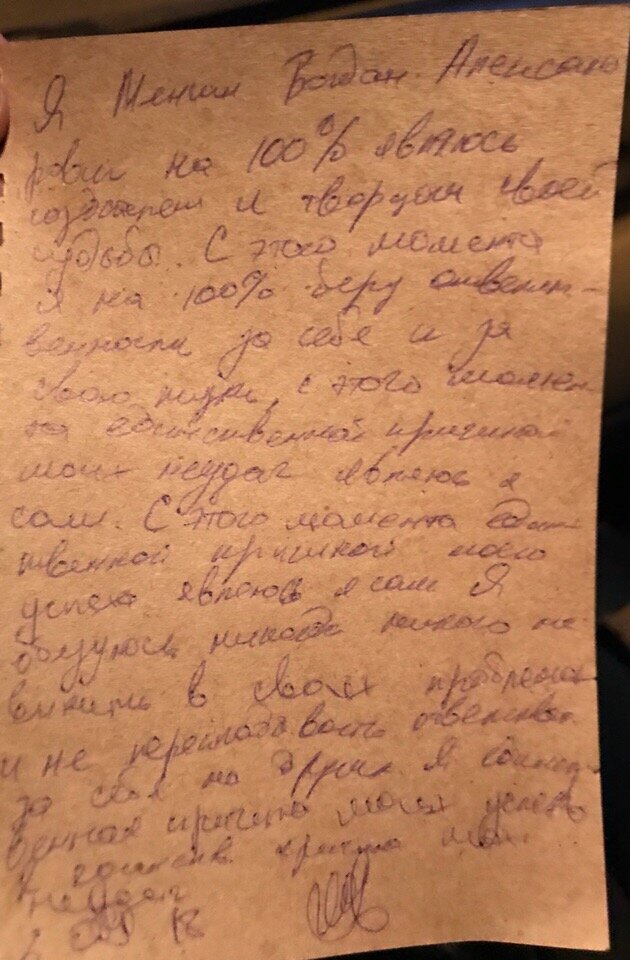 Я Менгин Богдан Александ
рович на 100% являюсь
создателем и творцом своей
судьбы. С этого момента
я на 100% беру ответст-
венность за себя и за
свою жизнь, с этого момен
та единственной причиной
моих неудач являюсь я
сам. С этого момента единс
твенной причиной моего
успеха являюсь я сам. Я
обязуюсь никогда никого не
винить в своих проблемах
и не перекладывать ответствен
за себя на других Я единст-
венная причина моих успехов
и единств причина моих
неудач
18